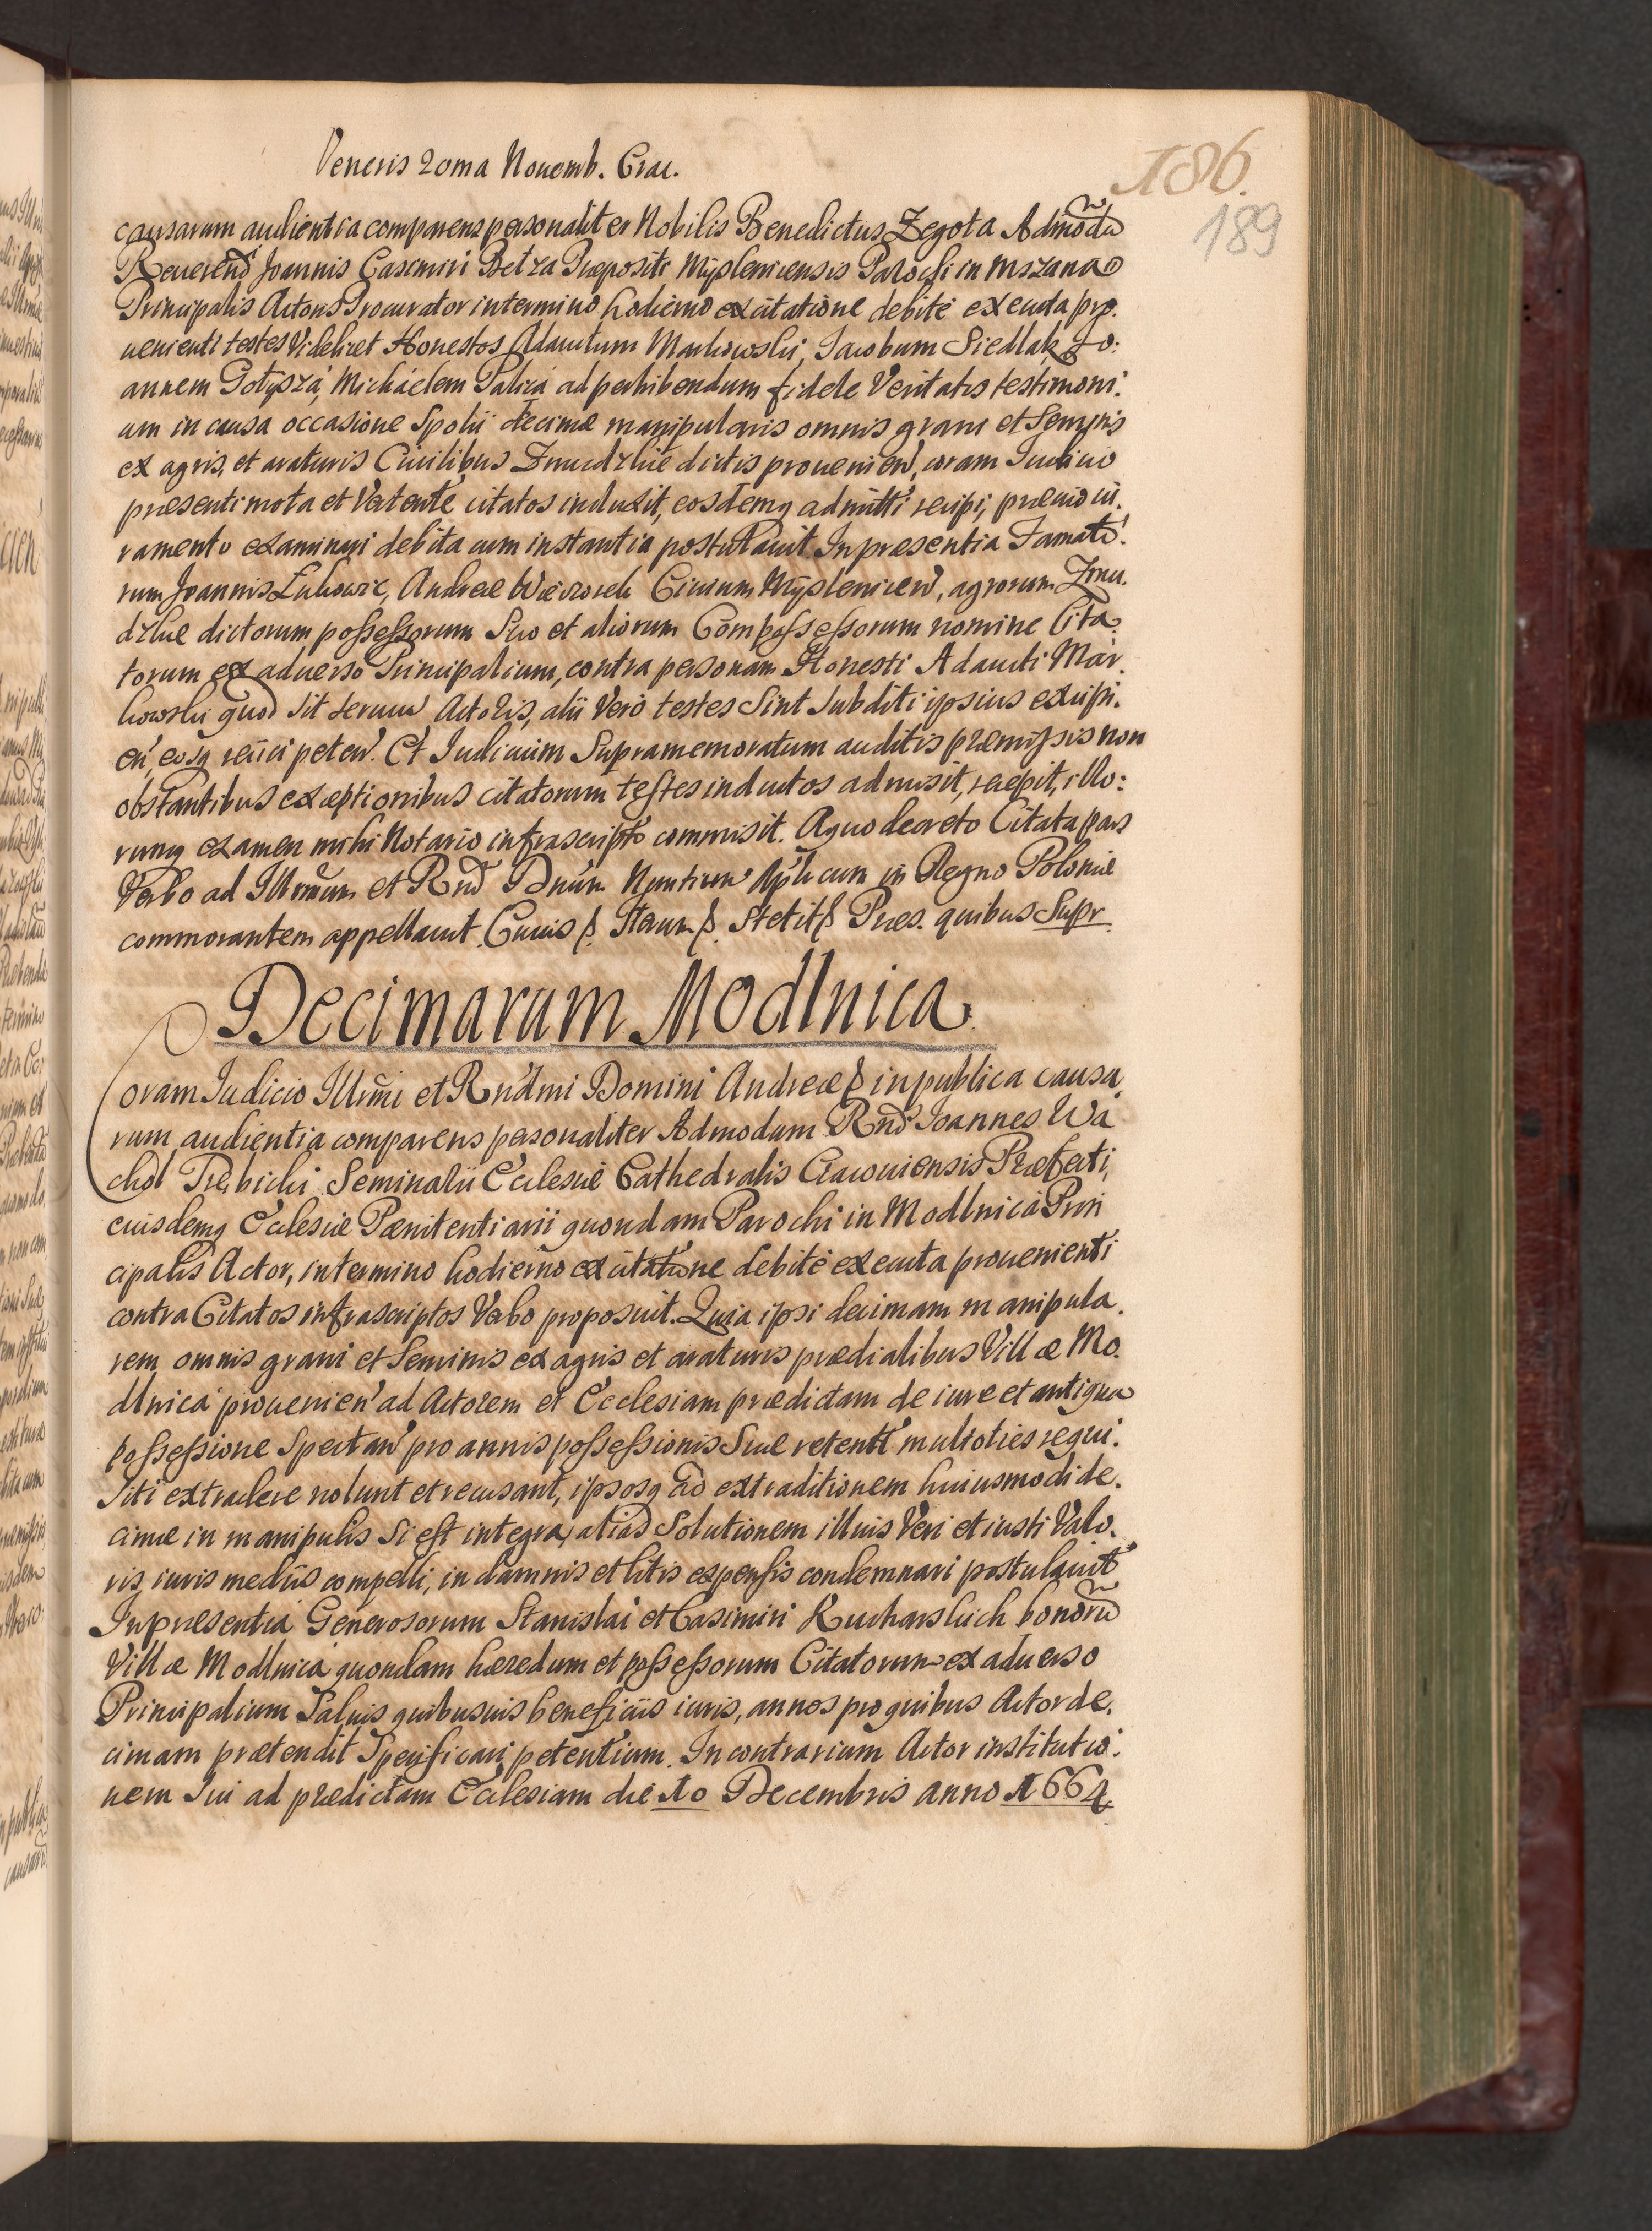 Veneris 20ma Nouemb. Crac.
186.
189
causarum audientia comparens personaliter Nobilis Benedictus Zegota Admodũ
Reuerend Joannis Casimiri Betza Præpositi Myslenicensis Parochi in Mszana
Principalis Actoris Procurator in termino hodierno ex citatione debite executa pro.
uenienti testes Videlicet Honestos Adauctum Markowski, Jacobum Siedlak Jo:
annem Gotysza, Michaelem Palica ad perhibendum fidele Veritatis testimoni.
um in causa occasione Spolii decimæ manipularis omnis grani et Seminis
ex agris, et araturis Ciuilibus Zmudzkie dictis prouenien, coram Iudicio
præsenti mota et Vertente citatos induxit, eosdemq admitti recipi, præuio iu.
ramento examinari debita cum instantia postulauit. In præsentia Famato.
rum Joannis Lukowic, Andreæ Wieciorek Ciuium Myslenicen, agrorum Zmu.
dzkie dictorum possessorum Suo et aliorum Compossessorum nomine Cita.
torum ex aduerso Principalium, contra personam Honesti Adaucti Mar.
kowski quod sit seruus Actoris, alii Vero testes Sint Subditi ipsius excipi.
en, eosq reiici peten. Et Iudicium Supramemoratum auditis præmissis non
obstantibus exceptionibus citatorum testes inductos admisit, recepit, illo:
rumq examen mihi Notario infrascripto commisit. A quo decreto Citata pars
Verbo ad Illmum et Rnd Dnum Nuntium Aplicum in Regno Poloniæ
commorantem appellauit. Cuius p. Iterum p. Stetit p Præs. quibus Supr
Decimarum Modlnica
Coram Iudicio Illmi et Rndmi Domini Andreæ p in publica causa
rum audientia comparens personaliter Admodum Rnd Joannes Wa
chol Trebicki Seminarii Ecclesiæ Cathedralis Cracouiensis Præfecti,
eiusdemq Ecclesiæ Pænitentiarii quondam Parochi in Modlnica Prin
cipalis Actor, in termino hodierno ex citatione debite executa prouenienti
contra Citatos infrascriptos Verbo proposuit. Quia ipsi decimam manipula.
rem omnis grani et Seminis ex agris et araturis prædialibus Villæ Mo.
dlnica prouenien ad Actorem et Ecclesiam prædictam de iure et antiqua
possessione Spectan pro annis possessionis Suæ retent multoties requi.
siti extradere nolunt et recusant, ipsosq ad extraditionem huiusmodi de.
cimæ in manipulis Si est integra, alias Solutionem illius Veri et iusti Valo.
ris, iuris mediis compelli, in damnis et litis expensis condemnari postulauit
In præsentia Generosorum Stanislai et Casimiri Kucharskich bonorũ
Villæ Modlnica quondam hæredum et possessorum Citatorum ex aduerso
Principalium Saluis quibusuis beneficiis iuris, annos pro quibus Actor de.
cimam prætendit Specificari petentium. In contrarium Actor institutio.
nem Sui ad prædictam Ecclesiam die 10 Decembris anno 1664